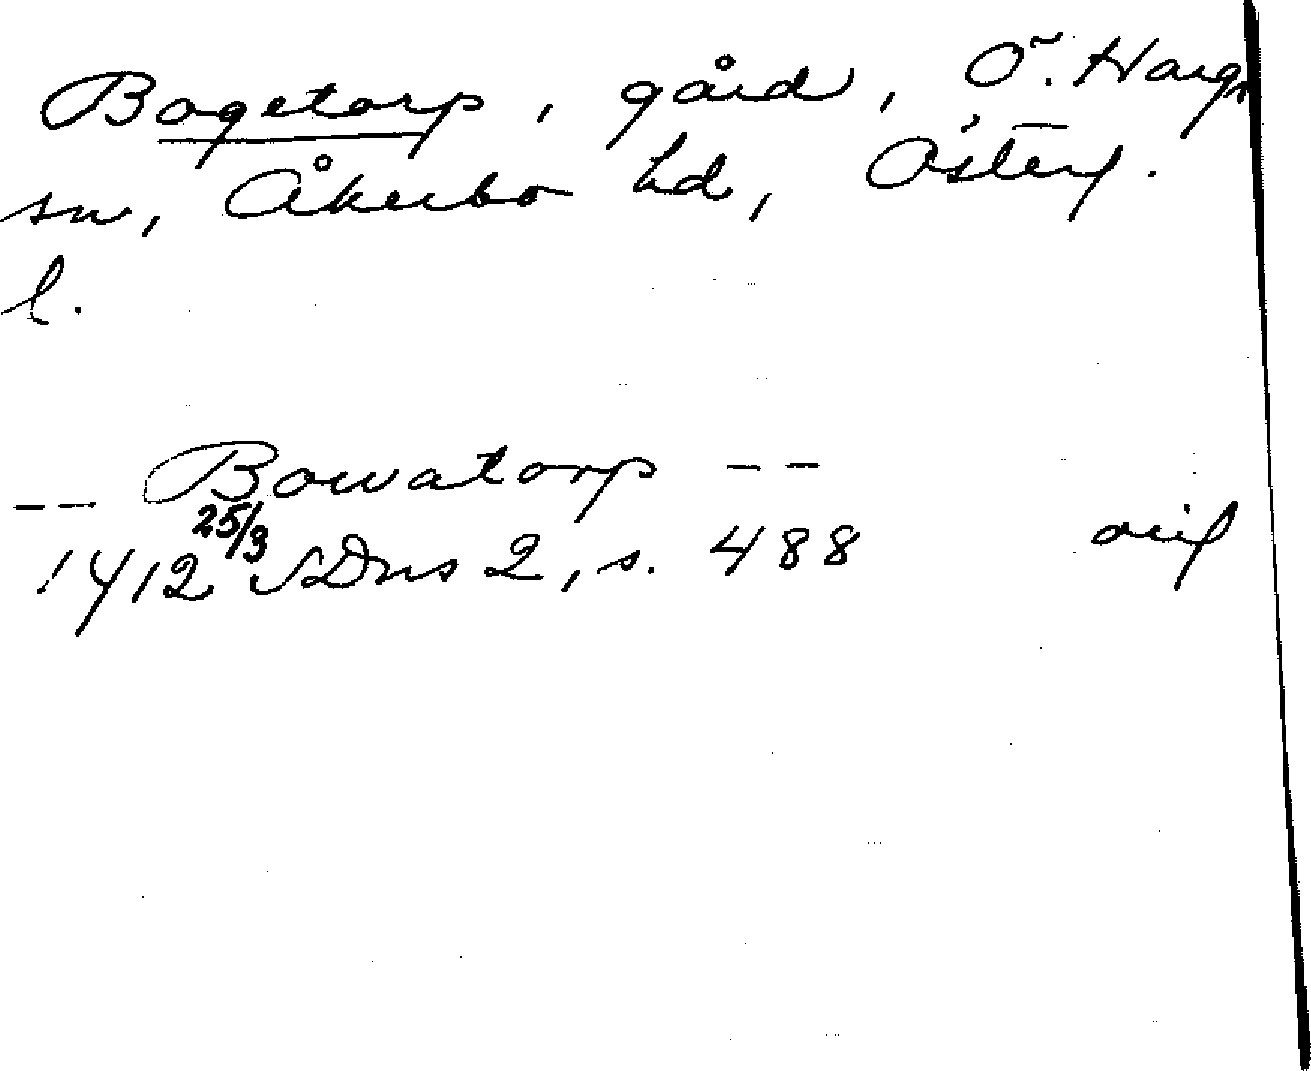 Bogetorp, gård, Ö. Hargs
sn, Åkerbo hd, Österg.
l.
-- Bowatorp --
1412 25/3 SDns 2, s. 488 orig